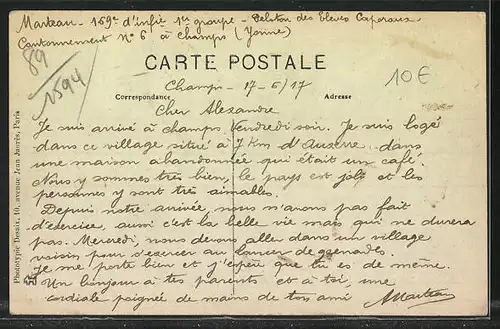 Marteau - 159e d'infie 1er groupe - Peloton des Eleves Caporaux
Cantonnement No 6 à Champs (Yonne)
89
1594
CARTE POSTALE
10€
Champs - 17-6/17
Correspondance
Adresse
Cher Alexandre
Je suis arrivé à champs, Vendredi soir. Je suis logé
dans ce village situé à 7 Km d'Auxerre dans
une maison abandonnée qui était un café.
Nous y sommes très bien, le pays est joli et les
personnes y sont très aimables.
Depuis notre arrivée nous n'avons pas fait
d'exercice, aussi c'est la belle vie mais qui ne durera
pas. Mercredi, nous devons aller dans un village
voisin pour s'exercer au lancer de grenades.
Je me porte bien et j'espère que tu es de même.
Un bonjour à tes parents et à toi, une
cordiale poignée de mains de ton ami
AMarteau
Phototypie Desaix, 10, avenue Jean Jaurès, Paris